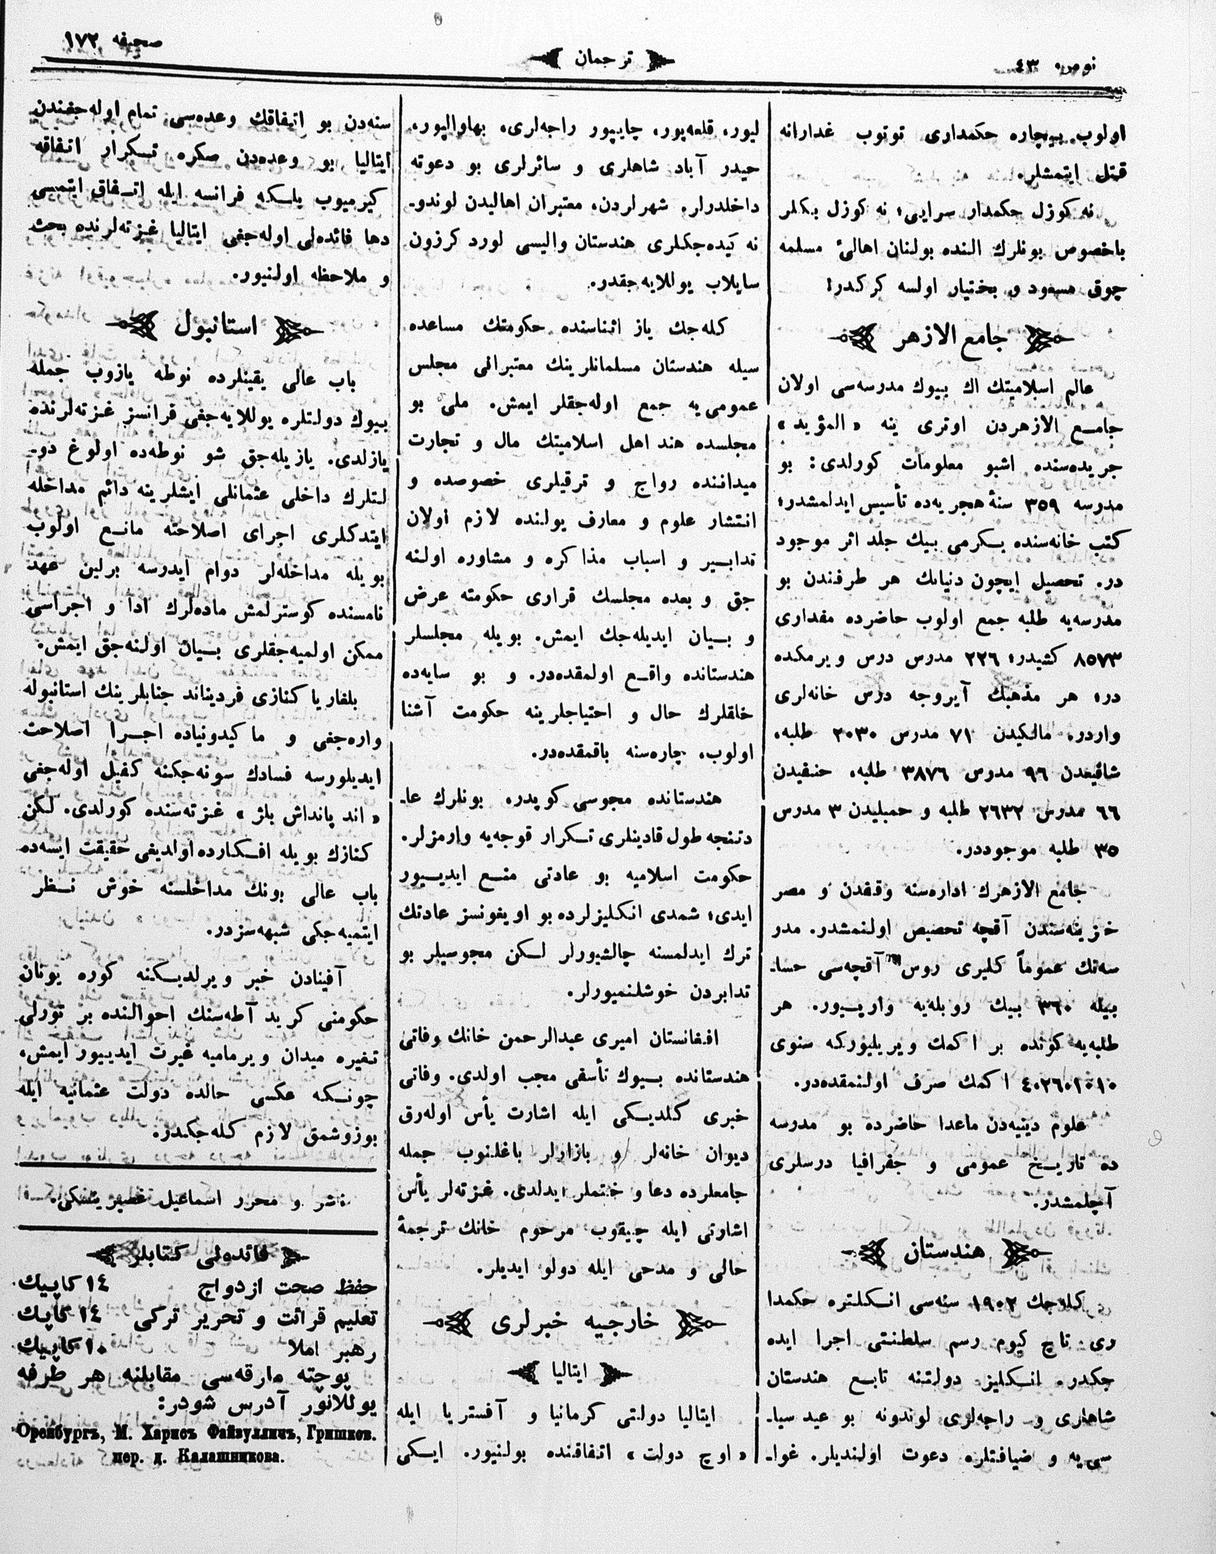 نومرو ٤٣
ترجمان
صحیفه ١٧٢
اولوب، بیچاره حکمداری توتوب غدارانه
قتل ایتمشلر.
نه کوزل حکمدار سرایی؛ نه کوزل بکلر
باخصوص بونلرك النده بولنان اهالئ مسلمه
چوق مسعود و بختیار اولسه کرکدر!
جامع الازهر
عالم اسلامیتك اڭ بیوك مدرسه‌سی اولان
جامع الازهردن اوتری ینه «المؤید»
جریده‌سنده اشبو معلومات کورلدی: بو
مدرسه ٣٥٩ سنۀ هجریه‌ده تأسیس ایدلمشدر؛
کتب خانه‌سنده یکرمی بیك جلد اثر موجود
در. تحصیل ایچون دنیانك هر طرفندن بو
مدرسه‌یه طلبه جمع اولوب حاضرده مقداری
٨٥٧٣ کشیدر؛ ٢٢٦ مدرس درس ویرمکده
در؛ هر مذهبك آیروجه درس خانه‌لری
واردر. مالکیدن ٧١ مدرس ٢٠٣٠ طلبه،
شافیعدن ٩٦ مدرس ٣٨٧٦ طلبه، حنفیدن
٦٦ مدرس ٢٦٣٢ طلبه و حمبلیدن ٣ مدرس
٣٥ طلبه موجوددر.
جامع الازهرك اداره‌سنه وقفدن و مصر
خزینه‌سندن آقچه تخصیص اولنمشدر. مدر
سه‌نك عموماً کلیری روس آقچه‌سی حسا-
بیله ٣٦٠ بیك روبله‌یه واریور. هر
طلبه‌یه کونده بر اکمك ویریلیورکه سنوی
اکمك صرف اولنمقده‌در.
علوم دینیه‌دن ماعدا حاضرده بو مدرسه
ده تاریخ عمومی و جغرافیا درسلری
آچلمشدر.
هندستان
کله‌جك ١٩٠٢ سنه‌سی انکلتره حکمدا
ری تاج کیوم رسم سلطنتی اجرا ایده
جکدر. انکلیز دولتنه تابع هندستان
شاهلری و راجه‌لری لوندونه بو عید سیا-
سی‌یه و ضیافتلره دعوت اولندیلر. غوا-
لیور، قلعه‌پور، چایپور راجه‌لری، بهاوالپور،
حیدر آباد شاهلری و سائرلری بو دعوته
داخلدرلر. شهرلردن، معتبران اهالیدن لوندو-
نه کیده‌جکلری هندستان والیسی لورد کرزون
سایلاب یوللایه‌جقدر.
کله‌جك یاز اثناسنده حکومتك مساعده
سیله هندستان مسلمانلرینك معتبرانی مجلس
عمومی‌یه جمع اوله‌جقلر ایمش. ملی بو
مجلسده هند اهل اسلامیتك مال و تجارت
میداننده رواج و ترقیلری خصوصده و
انتشار علوم و معارف یولنده لازم اولان
تدابیر و اسباب مذاکره و مشاوره اولنه
جق و بعده مجلسك قراری حکومته عرض
و بیان ایدیله‌جك ایمش. بویله مجلسلر
هندستانده واقع اولمقده‌در. و بو سایه‌ده
خلقلرك حال و احتیاجلرینه حکومت آشنا
اولوب، چاره‌سنه باقمقده‌در.
هندستانده مجوسی کوپدر. بونلرك عا-
دتنجه طول قادینلری تکرار قوجه‌یه وارمزلر.
حکومت اسلامیه بو عادتی منع ایدییور
ایدی؛ شمدی انکلیزلرده بو اویغونسز عادتك
ترك ایدلمسنه چالشیورلر لکن مجوسیلر بو
تدابردن خوشلنمیورلر.
افغانستان امیری عبدالرحمن خانك وفاتی
هندستانده بیوك تأسفی مجب اولدی. وفاتی
خبری کلدیکی ایله اشارت یأس اوله‌رق
دیوان خانه‌لر و بازارلر باغلنوب جمله
جامعلرده دعا و ختملر ایدلدی. غزته‌لر یأس
اشارتی ایله چیقوب مرحوم خانك ترجمۀ
حالی و مدحی ایله دولو ایدیلر.
خارجیه خبرلری
ایتالیا
ایتالیا دولتی کرمانیا و آفستریا ایله
«اوچ دولت» اتفاقنده بولنیور. ایکی
سنه‌دن بو اتفاقك وعده‌سی تمام اوله‌جغندن
ایتالیا بو وعده‌دن صکره تکرار اتفاقه
کیرمیوب بلکه فرانسه ایله اتفاق ایتمسی
دها فائده‌لی اوله‌جغی ایتالیا غزته‌لرنده بحث
و ملاحظه اولنیور.
استانبول
باب عالی یقینلرده نوطه یازوب جمله
بیوك دولتلره یوللایه‌جغی فرانسز غزته‌لرنده
یازلدی. یازیله‌جق شو نوطه‌ده اولوغ دو-
لتلرك داخلی عثمانلی ایشلرینه دائم مداخله
ایتدکلری اجرای اصلاحته مانع اولوب
بویله مداخله‌لر دوام ایدرسه برلین عهد
نامسنده کوسترلمش ماده‌لرك ادا و اجراسی
ممکن اولمیه‌جقلری بیان اولنه‌جق ایمش.
بلغاریا کنازی فردیناند جنابلرینك استانبوله
واره‌جغی و ماکیدونیاده اجرا اصلاحت
ایدیلورسه فسادك سونه‌جکنه کفیل اوله‌جغی
«اندپانداش بلژ» غزته‌سنده کورلدی. لکن
کنازك بویله افکارده اولدیغی حقیقت ایسه‌ده
باب عالی بونك مداخلسنه خوش نظر
ایتمیه‌جکی شبهه‌سزدر.
آفینادن خبر ویرلدیکنه کوره یونان
حکومتی کرید آطه‌سنك احوالنده بر تورلی
تغیره میدان ویرمامیه غیرت ایدییور ایمش،
چونکه عکسی حالده دولت عثمانیه ایله
بوزوشمق لازم کله‌جکدر.
ناشر و محرر اسماعیل غصبرینسکی.
فائده‌لی کتابلر
حفظ صحت ازدواج ١٤ کاپیك
تعلیم قرائت و تحریر ترکی ١٤ کاپیك
رهبر املا ١٠ کاپیك
پوچته مارقه‌سی مقابلنه هر طرفه
یوللانور آدرس شودر:
Оренбургъ, М. Харисъ Файзуллинъ, Гришков.
пер. д. Калашникова.